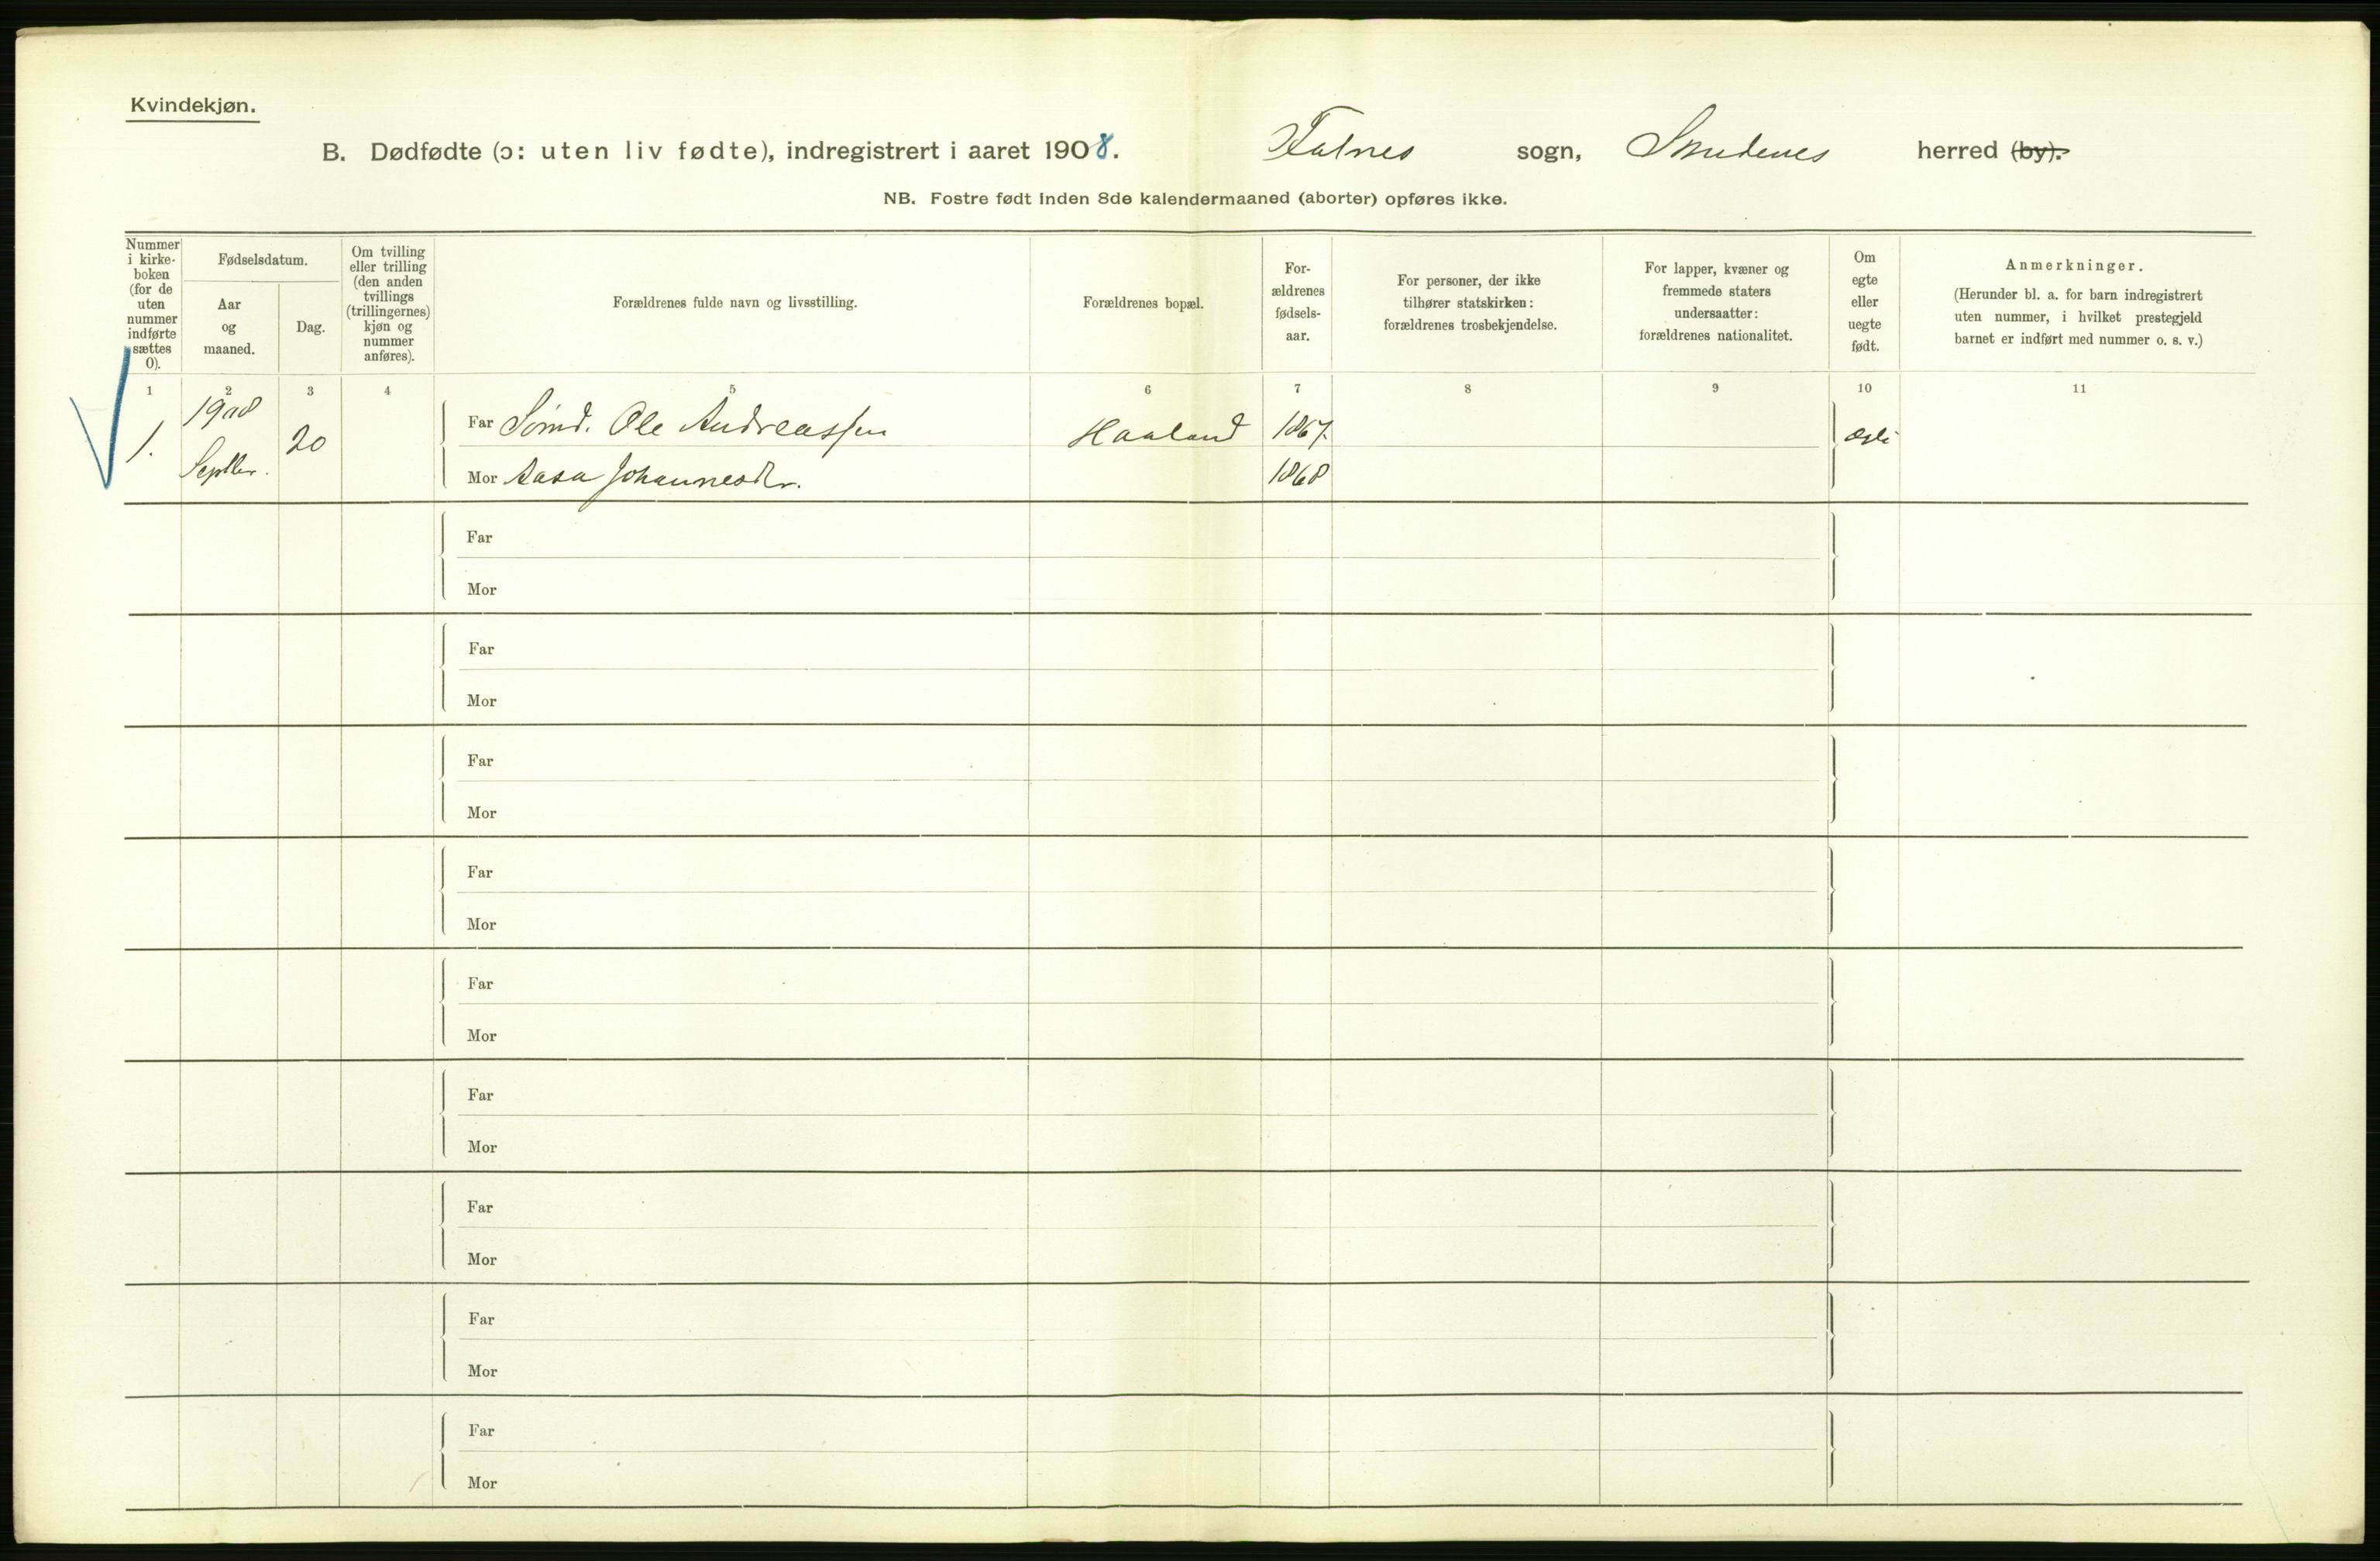 Kvindekjøn.
B. Dødfødte (ɔ: uten liv fødte), indregistrert i aaret 1908. Falnes sogn, Skudenes herred (by).
NB. Fostre født inden 8de kalendermaaned (aborter) opføres ikke.
Nummer
i kirke-
boken
(for de
uten
nummer
indførte
sættes
0).
Fødselsdatum.
Aar
og
maaned.
Dag.
Om tvilling
eller trilling
(den anden
tvillings
(trillingernes)
kjøn og
nummer
anføres).
Forældrenes fulde navn og livsstilling.
Forældrenes bopæl.
For-
ældrenes
fødsels-
aar.
For personer, der ikke
tilhører statskirken:
forældrenes trosbekjendelse.
For lapper, kvæner og
fremmede staters
undersaatter:
forældrenes nationalitet.
Om
egte
eller
uegte
født.
Anmerkninger.
(Herunder bl. a. for barn indregistrert
uten nummer, i hvilket prestegjeld
barnet er indført med nummer o. s. v.)
1 2 3 4 5 6 7 8 9 10 11
1908
1. 20 Far Sømd. Ole Andreassen Haaland 1867. Ægte
Septbr. Mor Aasa Johannesdr. 1868
Far
Mor
Far
Mor
Far
Mor
Far
Mor
Far
Mor
Far
Mor
Far
Mor
Far
Mor
Far
Mor